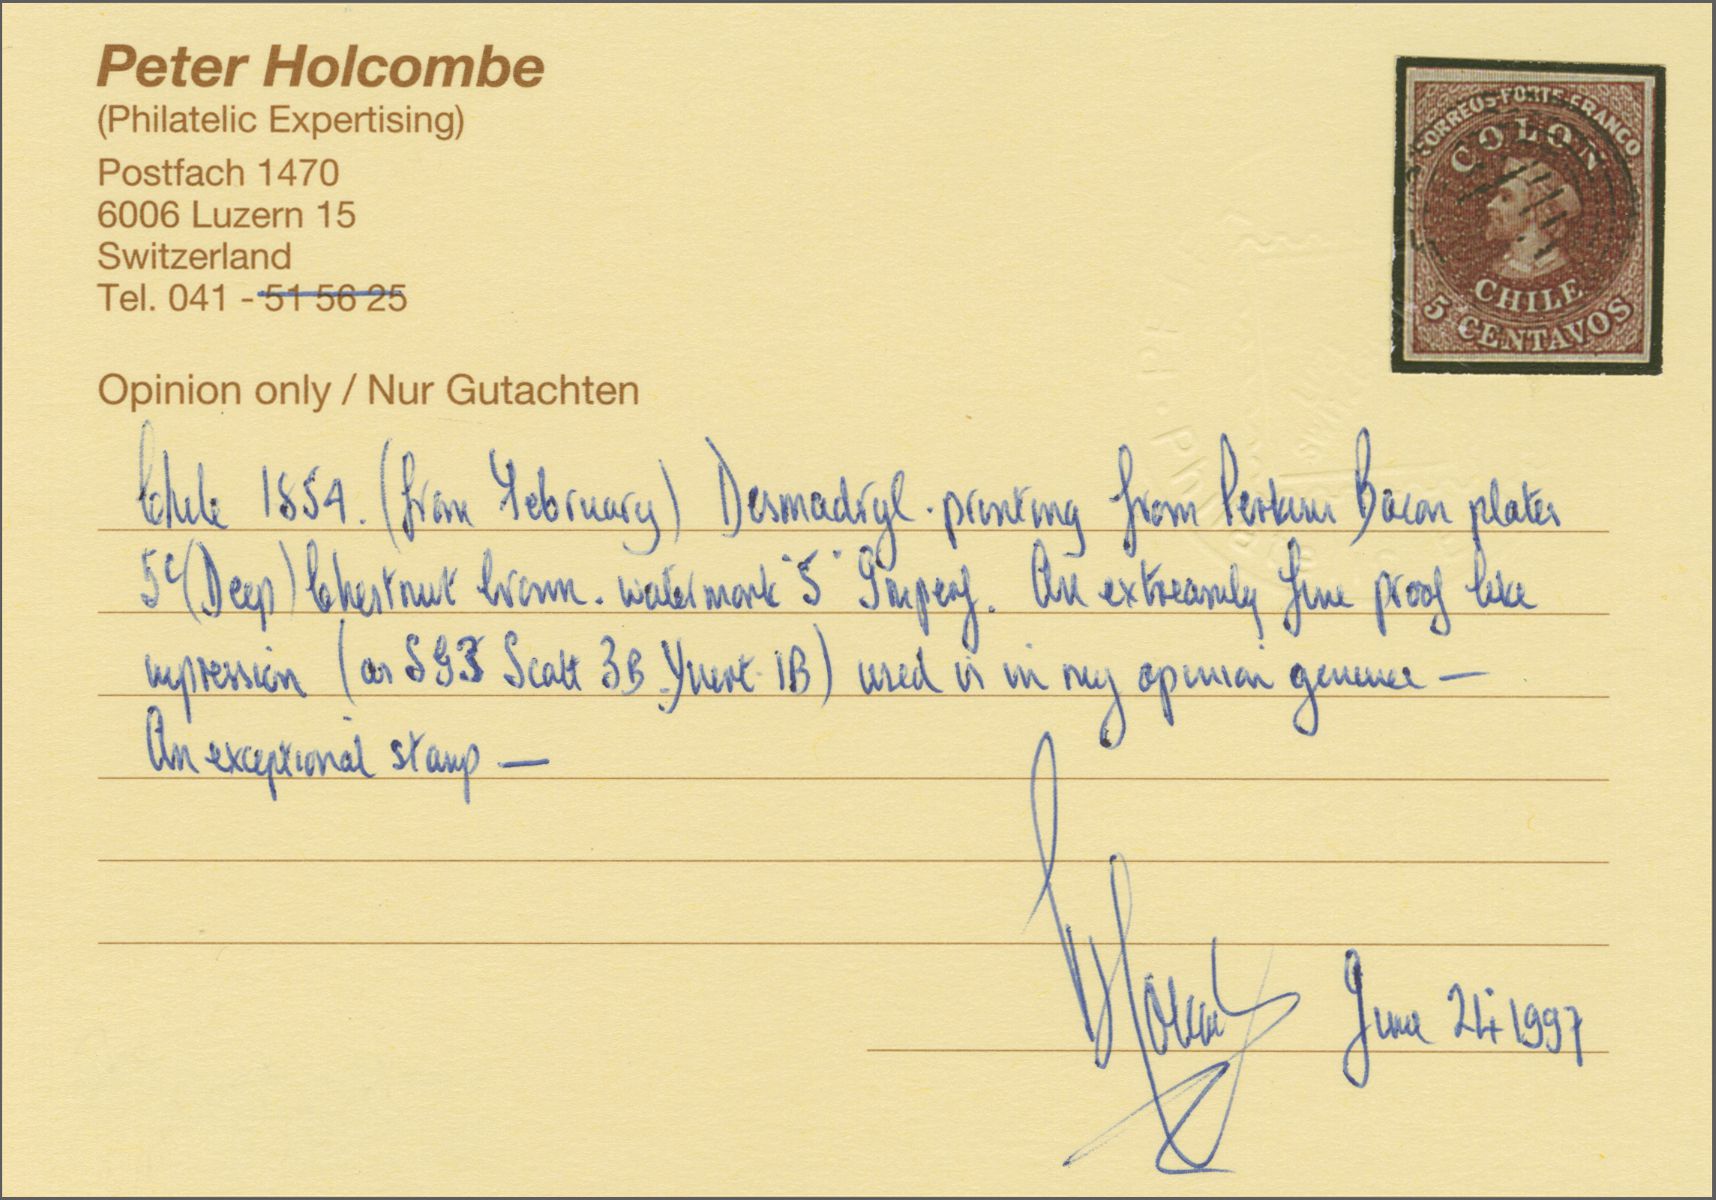 Peter Holcombe
(Philatelic Expertising)
Postfach 1470
6006 Luzern 15
Switzerland
Tel. 041 - 51 56 25
CORREOS·PORTE·FRANCO
COLON
CHILE
5 CENTAVOS
Opinion only / Nur Gutachten
Chile 1854. (from February) Desmadryl. printing from Perkins Bacon plates
5c (Deep) Chestnut brown. watermark "5" Imperf. An extreamly fine proof like
impression (as SG3 Scott 3B Yvert 1B) used is in my opinion genuine —
An exceptional stamp —
June 24 1997